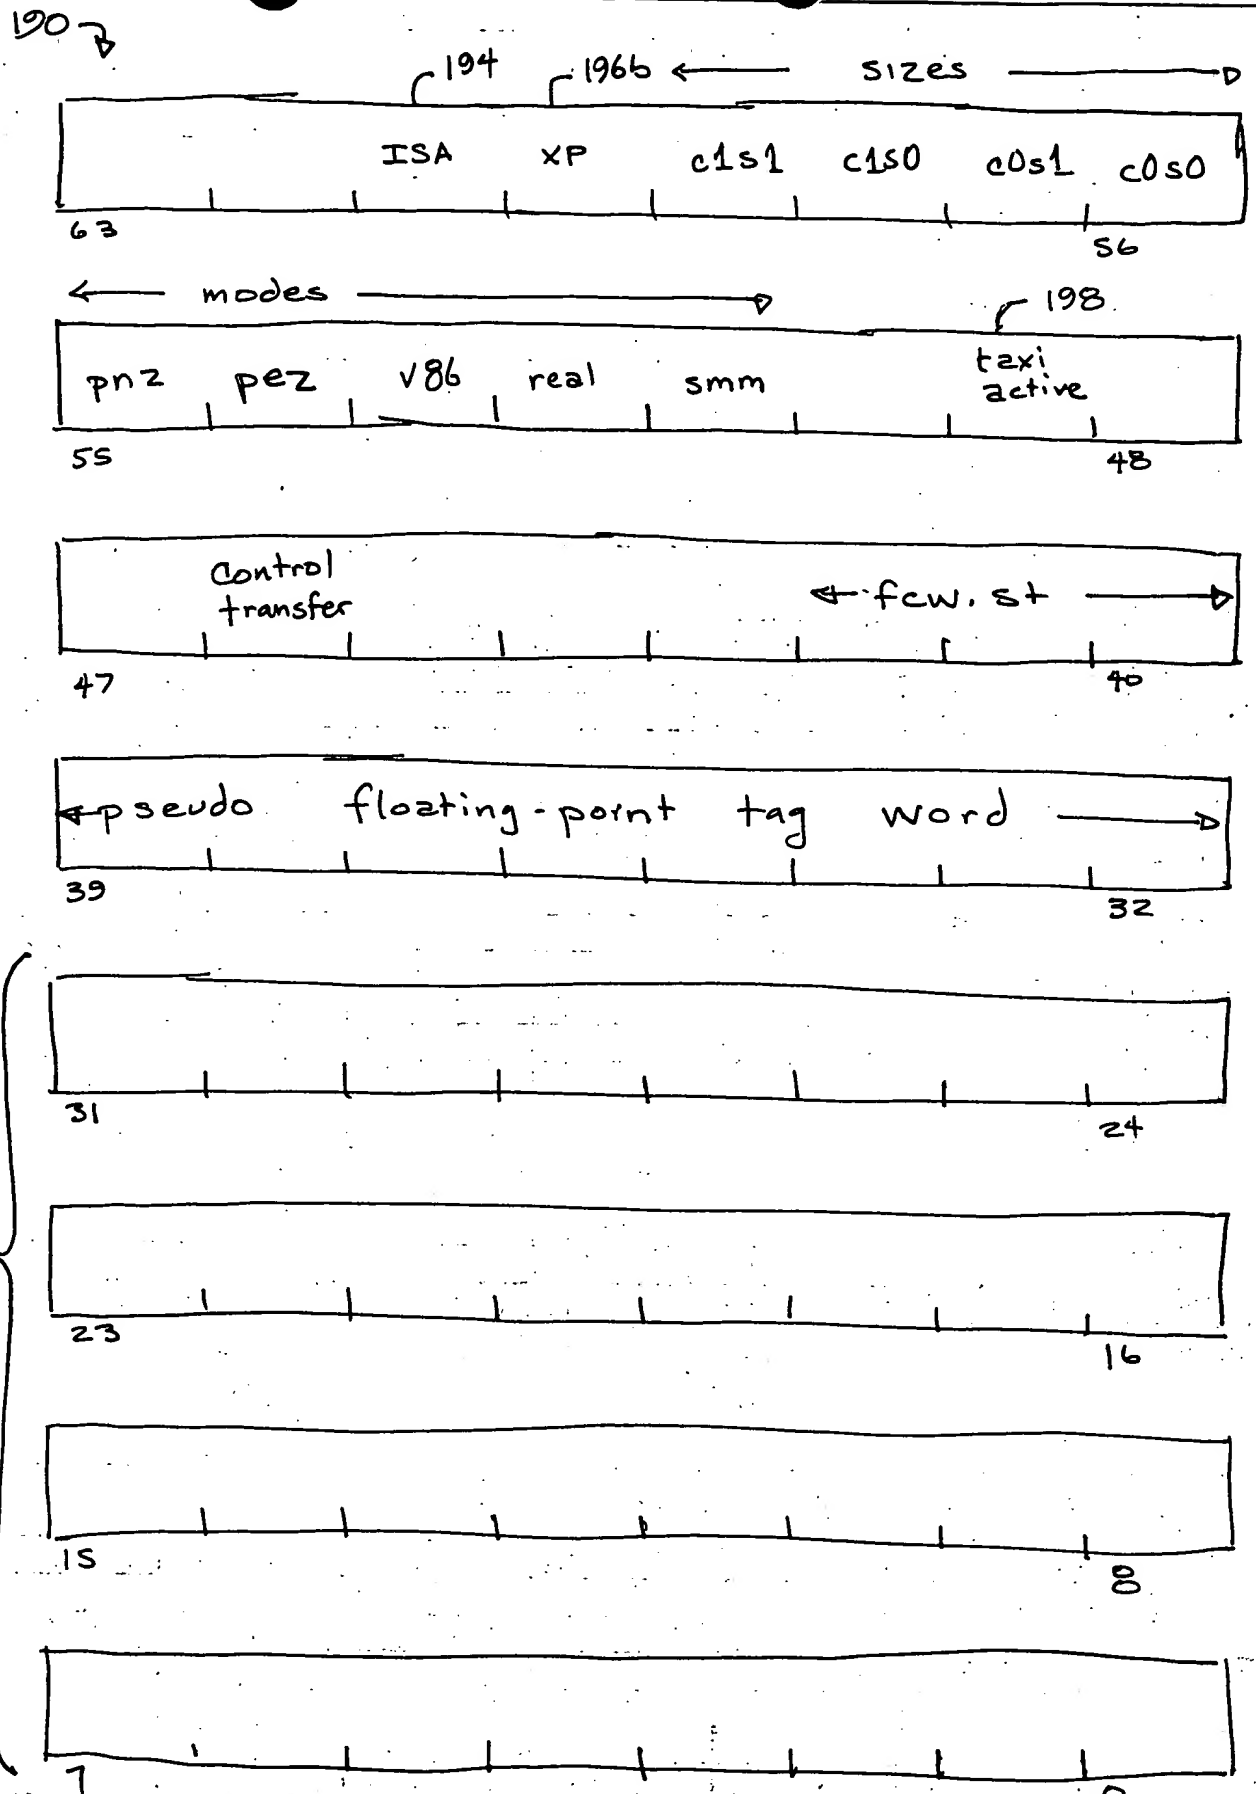 190
194 196b sizes
ISA XP c1s1 c1s0 c0s1 c0s0
63 56
modes 198
pnz pez v86 real smm taxi
active
55 48
control
transfer fcw.st
47 40
pseudo floating-point tag word
39 32
31 24
23 16
15 8
7